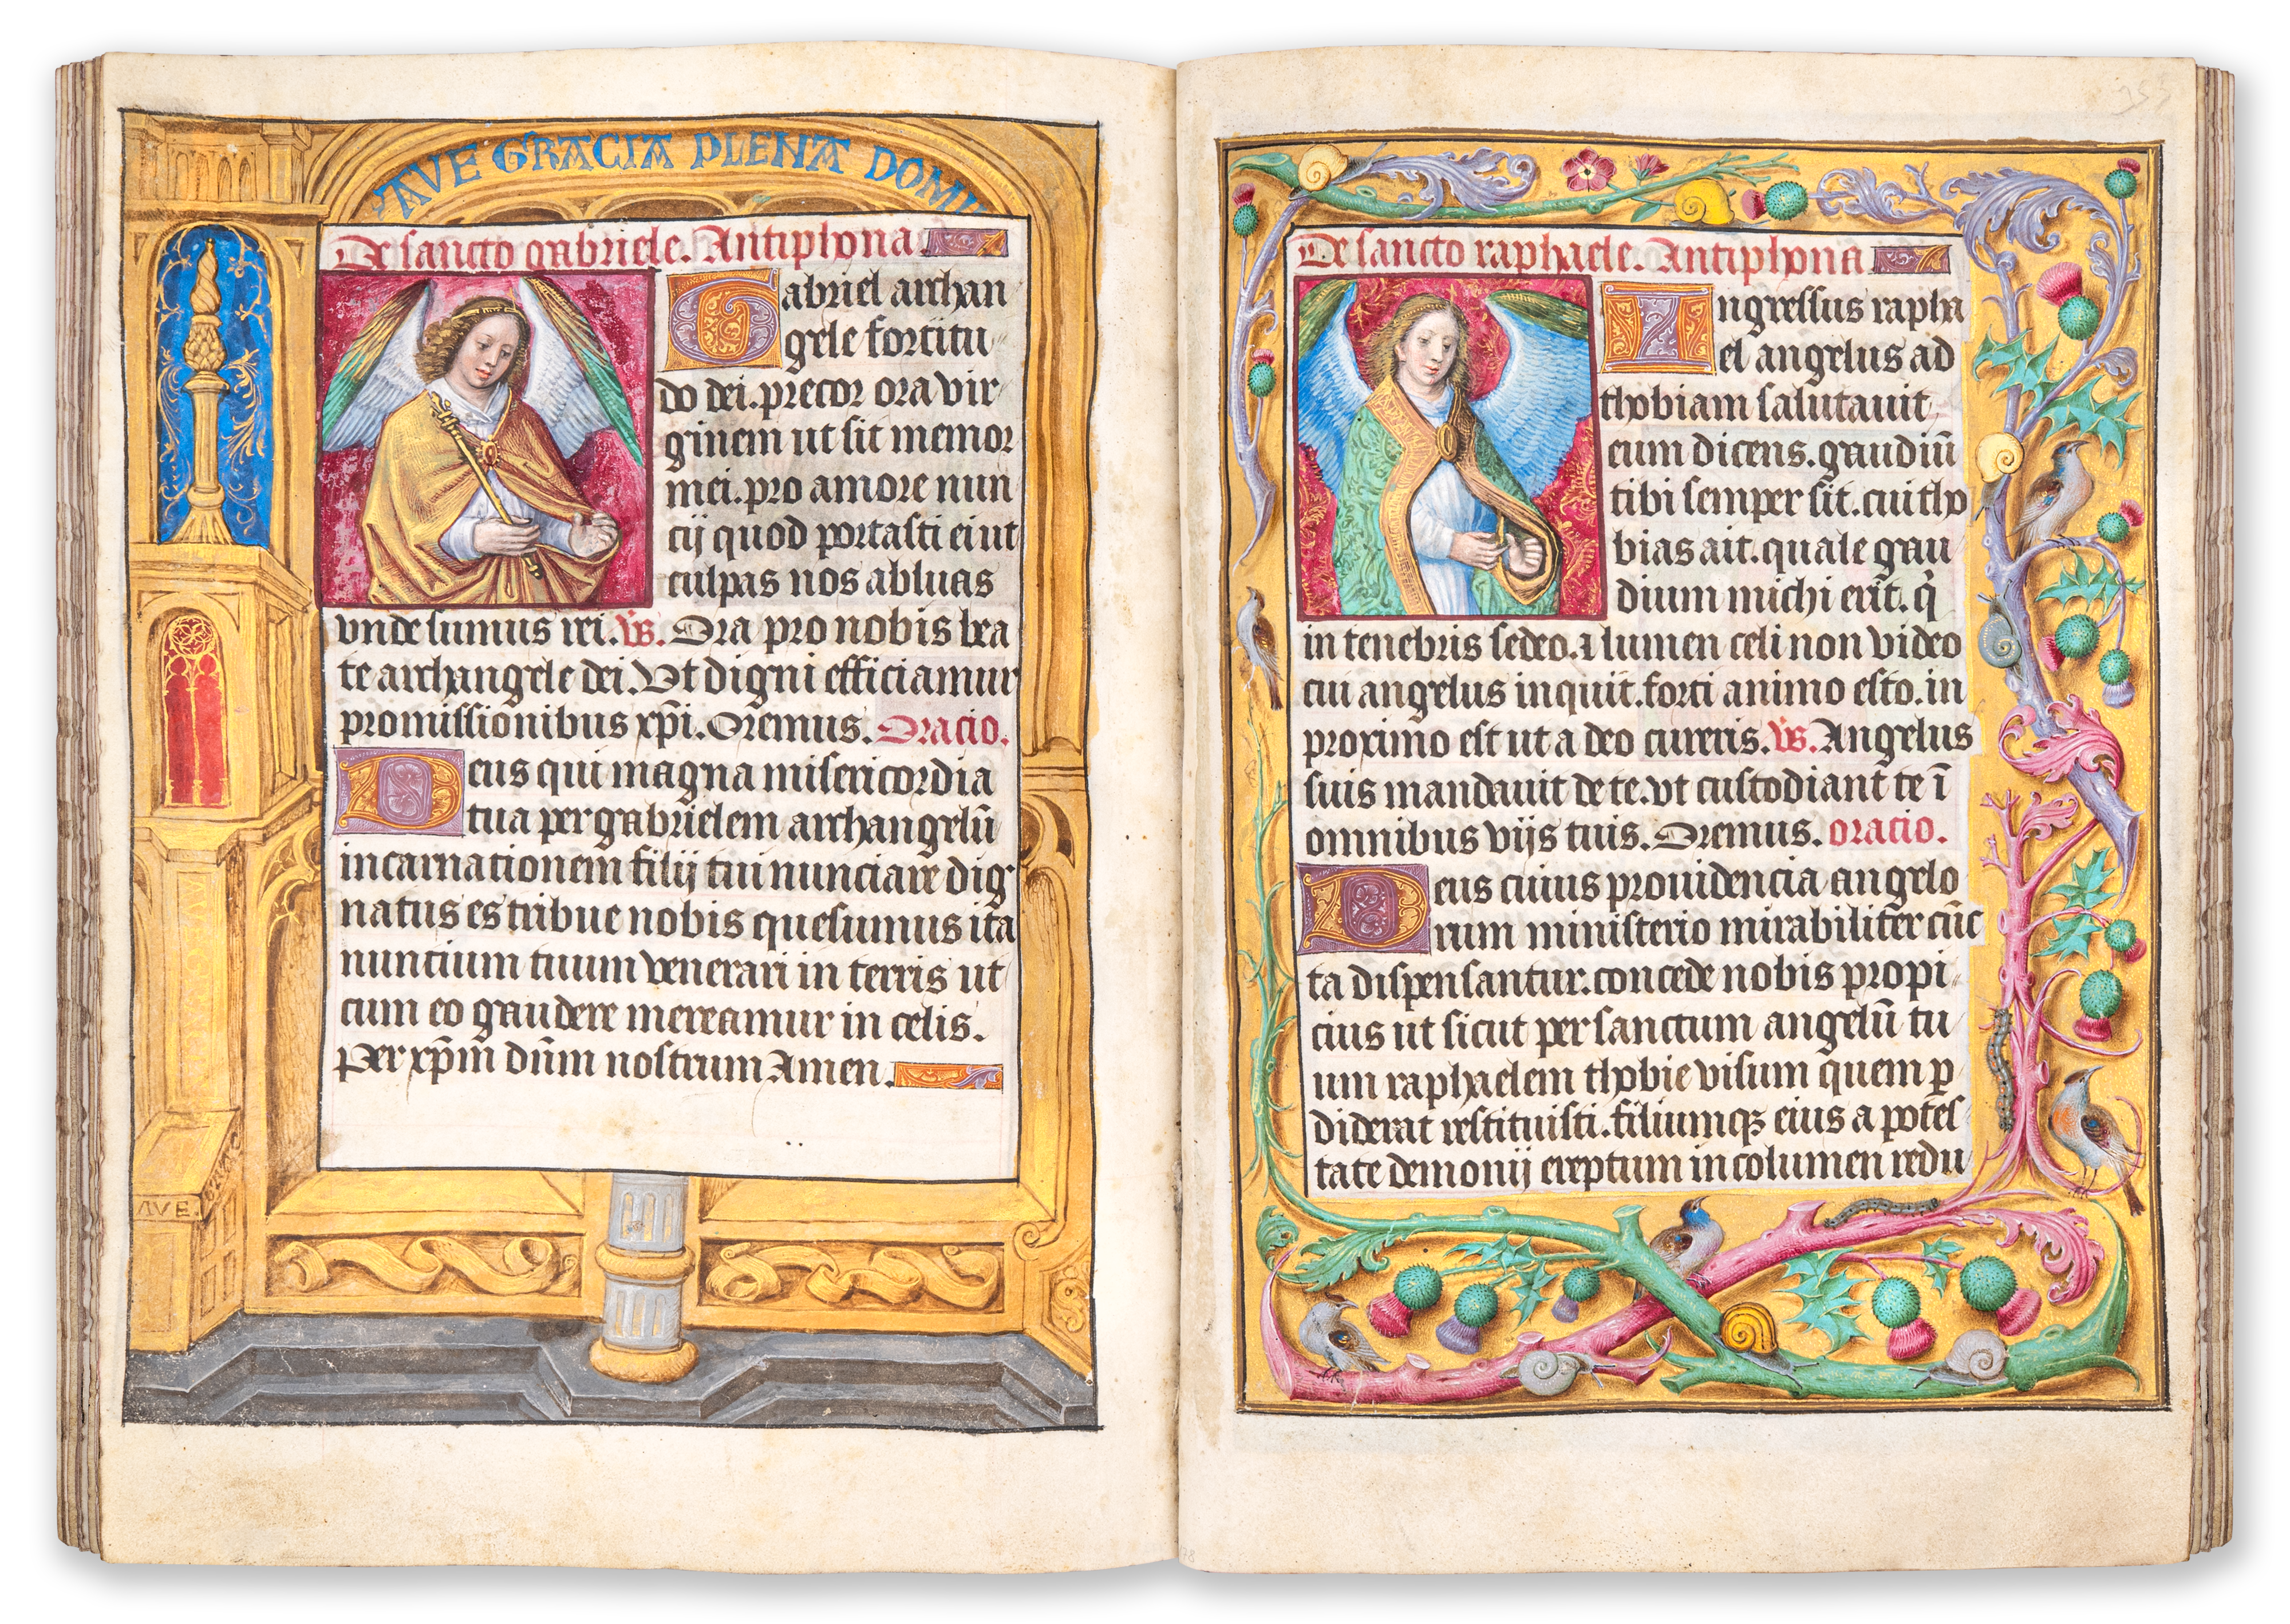 AVE GRACIA PLENA DOMI
De sancto gabriele. Antiphona
Gabriel archan
gele fortitu
do dei. precor ora vir
ginem ut sit memor
mei. pro amore nun
cij quod portasti ei ut
culpas nos abluas
vnde sumus rei. Vs. Ora pro nobis bea
te archangele dei. Vt digni efficiamur
promissionibus xp̄i. Oremus. Oracio.
Deus qui magna misericordia
tua per gabrielem archangelū
incarnationem filij tui nunciare dig
natus es tribue nobis quesumus ita
nuncium tuum venerari in terris ut
cum eo gaudere mereamur in celis.
Per xp̄m dūm nostrum Amen.
AVE.
De sancto raphaele. Antiphona
Ingressus rapha
el angelus ad
thobiam salutauit
eum dicens. gaudiū
tibi semper sit. cui tho
bias ait. quale gau
dium michi erit. q̄
in tenebris sedeo. ⁊ lumen celi non video
cui angelus inquit. forti animo esto. in
proximo est ut a deo cureris. Vs. Angelus
suis mandauit de te. vt custodiant te ī
omnibus vijs tuis. Oremus. oracio.
Deus cuius prouidencia angelo
rum ministerio mirabiliter cūc
ta dispensantur. concede nobis propi
cius ut sicut per sanctum angelū tu
um raphaelem thobie visum quem p̱
diderat restituisti. filiumqꝫ eius a potes
tate demonij ereptum incolumen redu